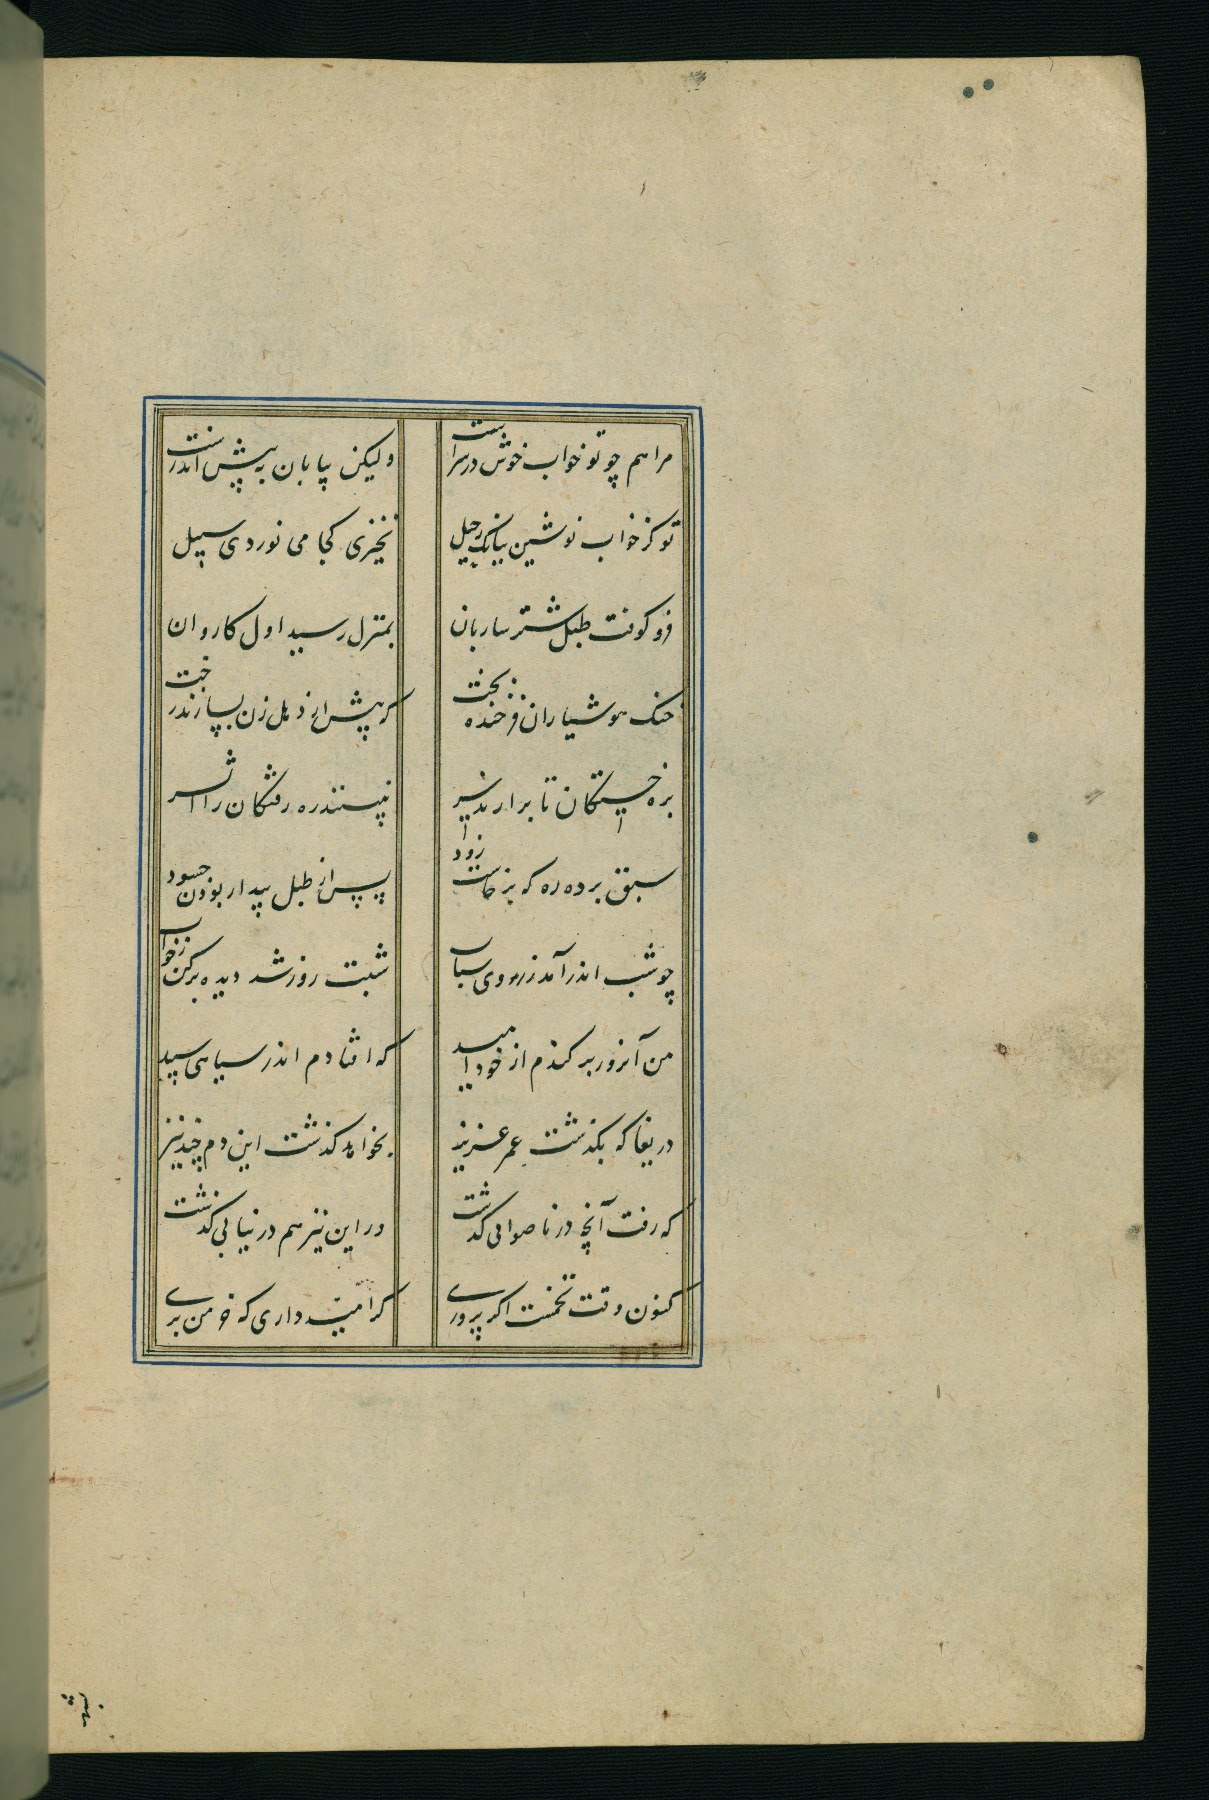 مرا هم چو تو خواب خوش در سراست ولیکن بیابان به پیش اندرست
تو کز خواب نوشین ببانک رحیل نخیزی کجا می نوردی سبیل
فرو کوفت طبل شتر ساربان بمنزل رسید اول کاروان
خنک هوشیاران فرخنده بخت که پیش از دهل زن بسازند رخت
بره خستکان تا برارند سر نبینند ره رفتکان را اثر
سبق برده ره که برخاست زود پس از طبل بیدار بودن چه سود
چو شب اندر آمد ز روی سباب شبت روز شد دیده برکن ز خواب
من آنروز برکندم از خود امید که افتادم اندر سیاهی سپید
دریغا که بگذشت عمر عزیز بخواهد گذشت این دم چند نیز
که رفت آنچه در ناصوابی گذشت ور این نیز هم در نیابی گذشت
کنون وقت تخمست اکر پروری کر امید داری که خرمن بری